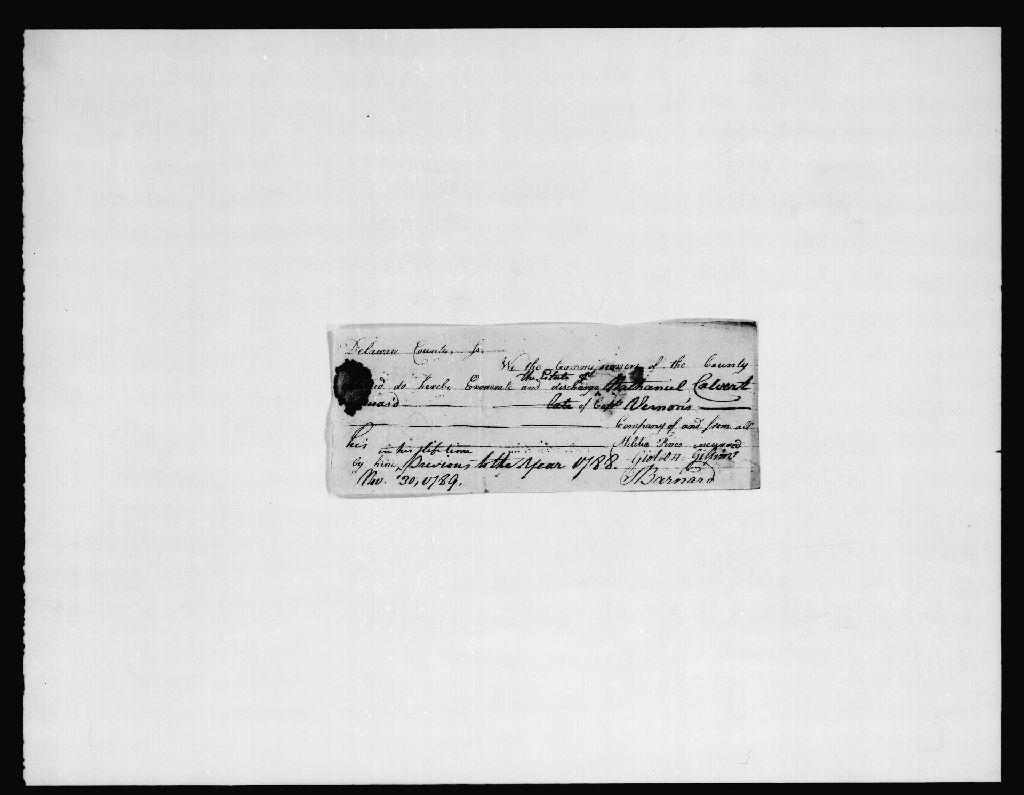 Delaware County, ss.
We the Commissioners of the County
do hereby Exonerate and discharge the Estate of Nathaniel Calvert
late of Capt Vernon's
Company of and from all
his in his life time Militia Fines incurred
by him, Previous to the Year 1788.
Nov. 30, 1789. JBarnard